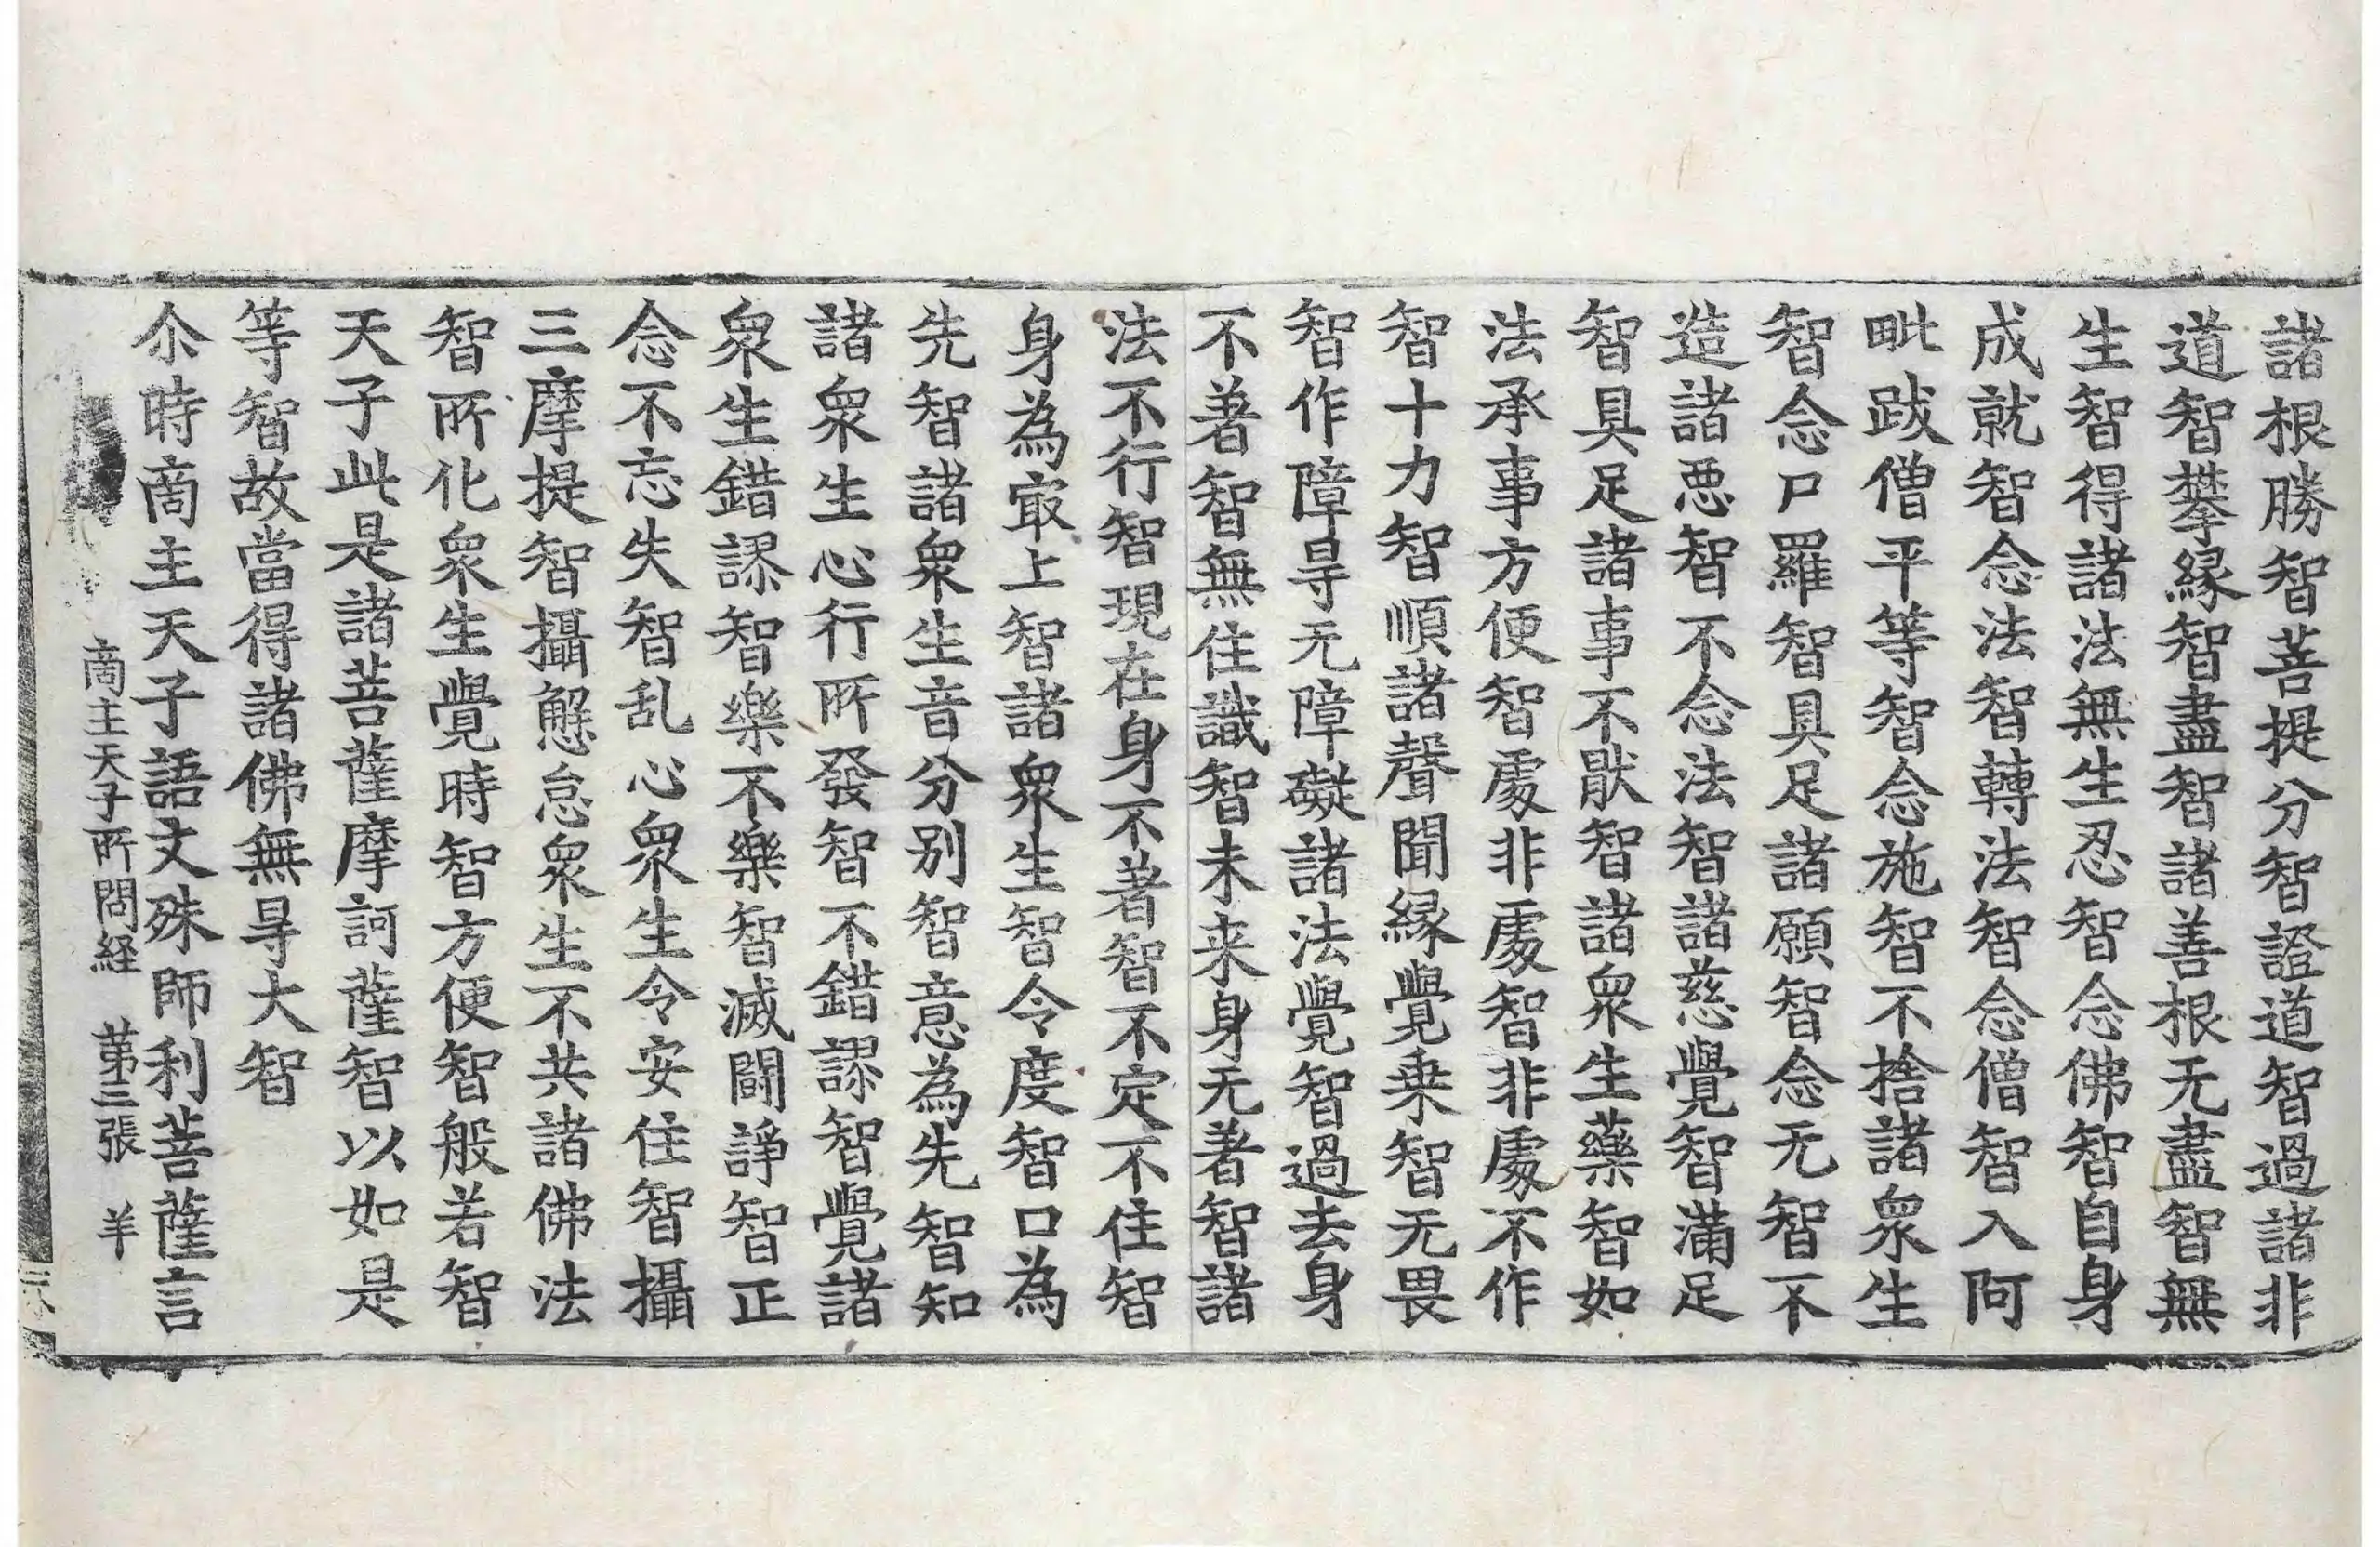 諸根勝智菩提分智證道智過諸非
道智攀縁智盡智諸善根无盡智無
生智得諸法無生忍智念佛智自身
成就智念法智轉法智念僧智入阿
毗跋僧平等智念施智不捨諸衆生
智念尸羅智具足諸願智念无智不
造諸悪智不念法智諸慈覺智滿足
智具足諸事不猒智諸衆生藥智如
法承事方便智處非處智非處不作
智十力智順諸聲聞縁覺乗智无畏
智作障㝵无障礙諸法覺智過去身
不著智無住識智未来身无著智諸
法不行智現在身不著智不定不住智
身為冣上智諸衆生智令度智口為
先智諸衆生音分別智意為先智知
諸衆生心行所發智不錯謬智覺諸
衆生錯謬智樂不樂智滅闘諍智正
念不忘失智乱心衆生令安住智攝
三摩提智攝懈怠衆生不共諸佛法
智所化衆生覺時智方便智般若智
天子此是諸菩薩摩訶薩智以如是
等智故當得諸佛無㝵大智
尒時商主天子語文殊師利菩薩言
商主天子所問経 苐三張 羊